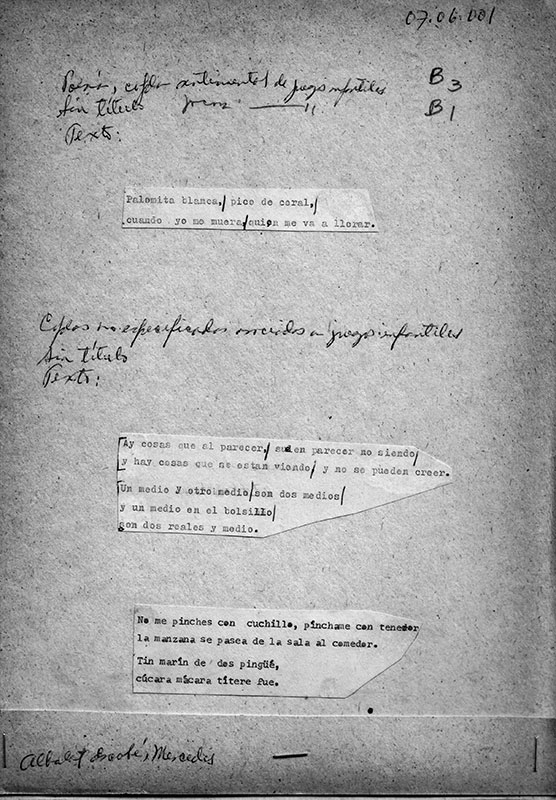 07.06.001
Poesía, coplas de juegos infantiles B3
Sin título B1
Texto:
Palomita blanca,/ pico de coral,/
cuando yo me muera/quien me va a llorar.
Coplas no especificadas asociadas a juegos infantiles
Sin título
Texto:
Ay cosas que al parecer,/ suelen parecer no siendo/
y hay cosas que se estan viendo/ y no se pueden creer.
Un medio y otro medio/son dos medios/
y un medio en el bolsillo/
son dos reales y medio.
No me pinches con cuchillo, pínchame con tenedor
la manzana se pasea de la sala al comedor.
Tin marín de dos pingüé,
cúcara mácara títere fue.
Mercedes